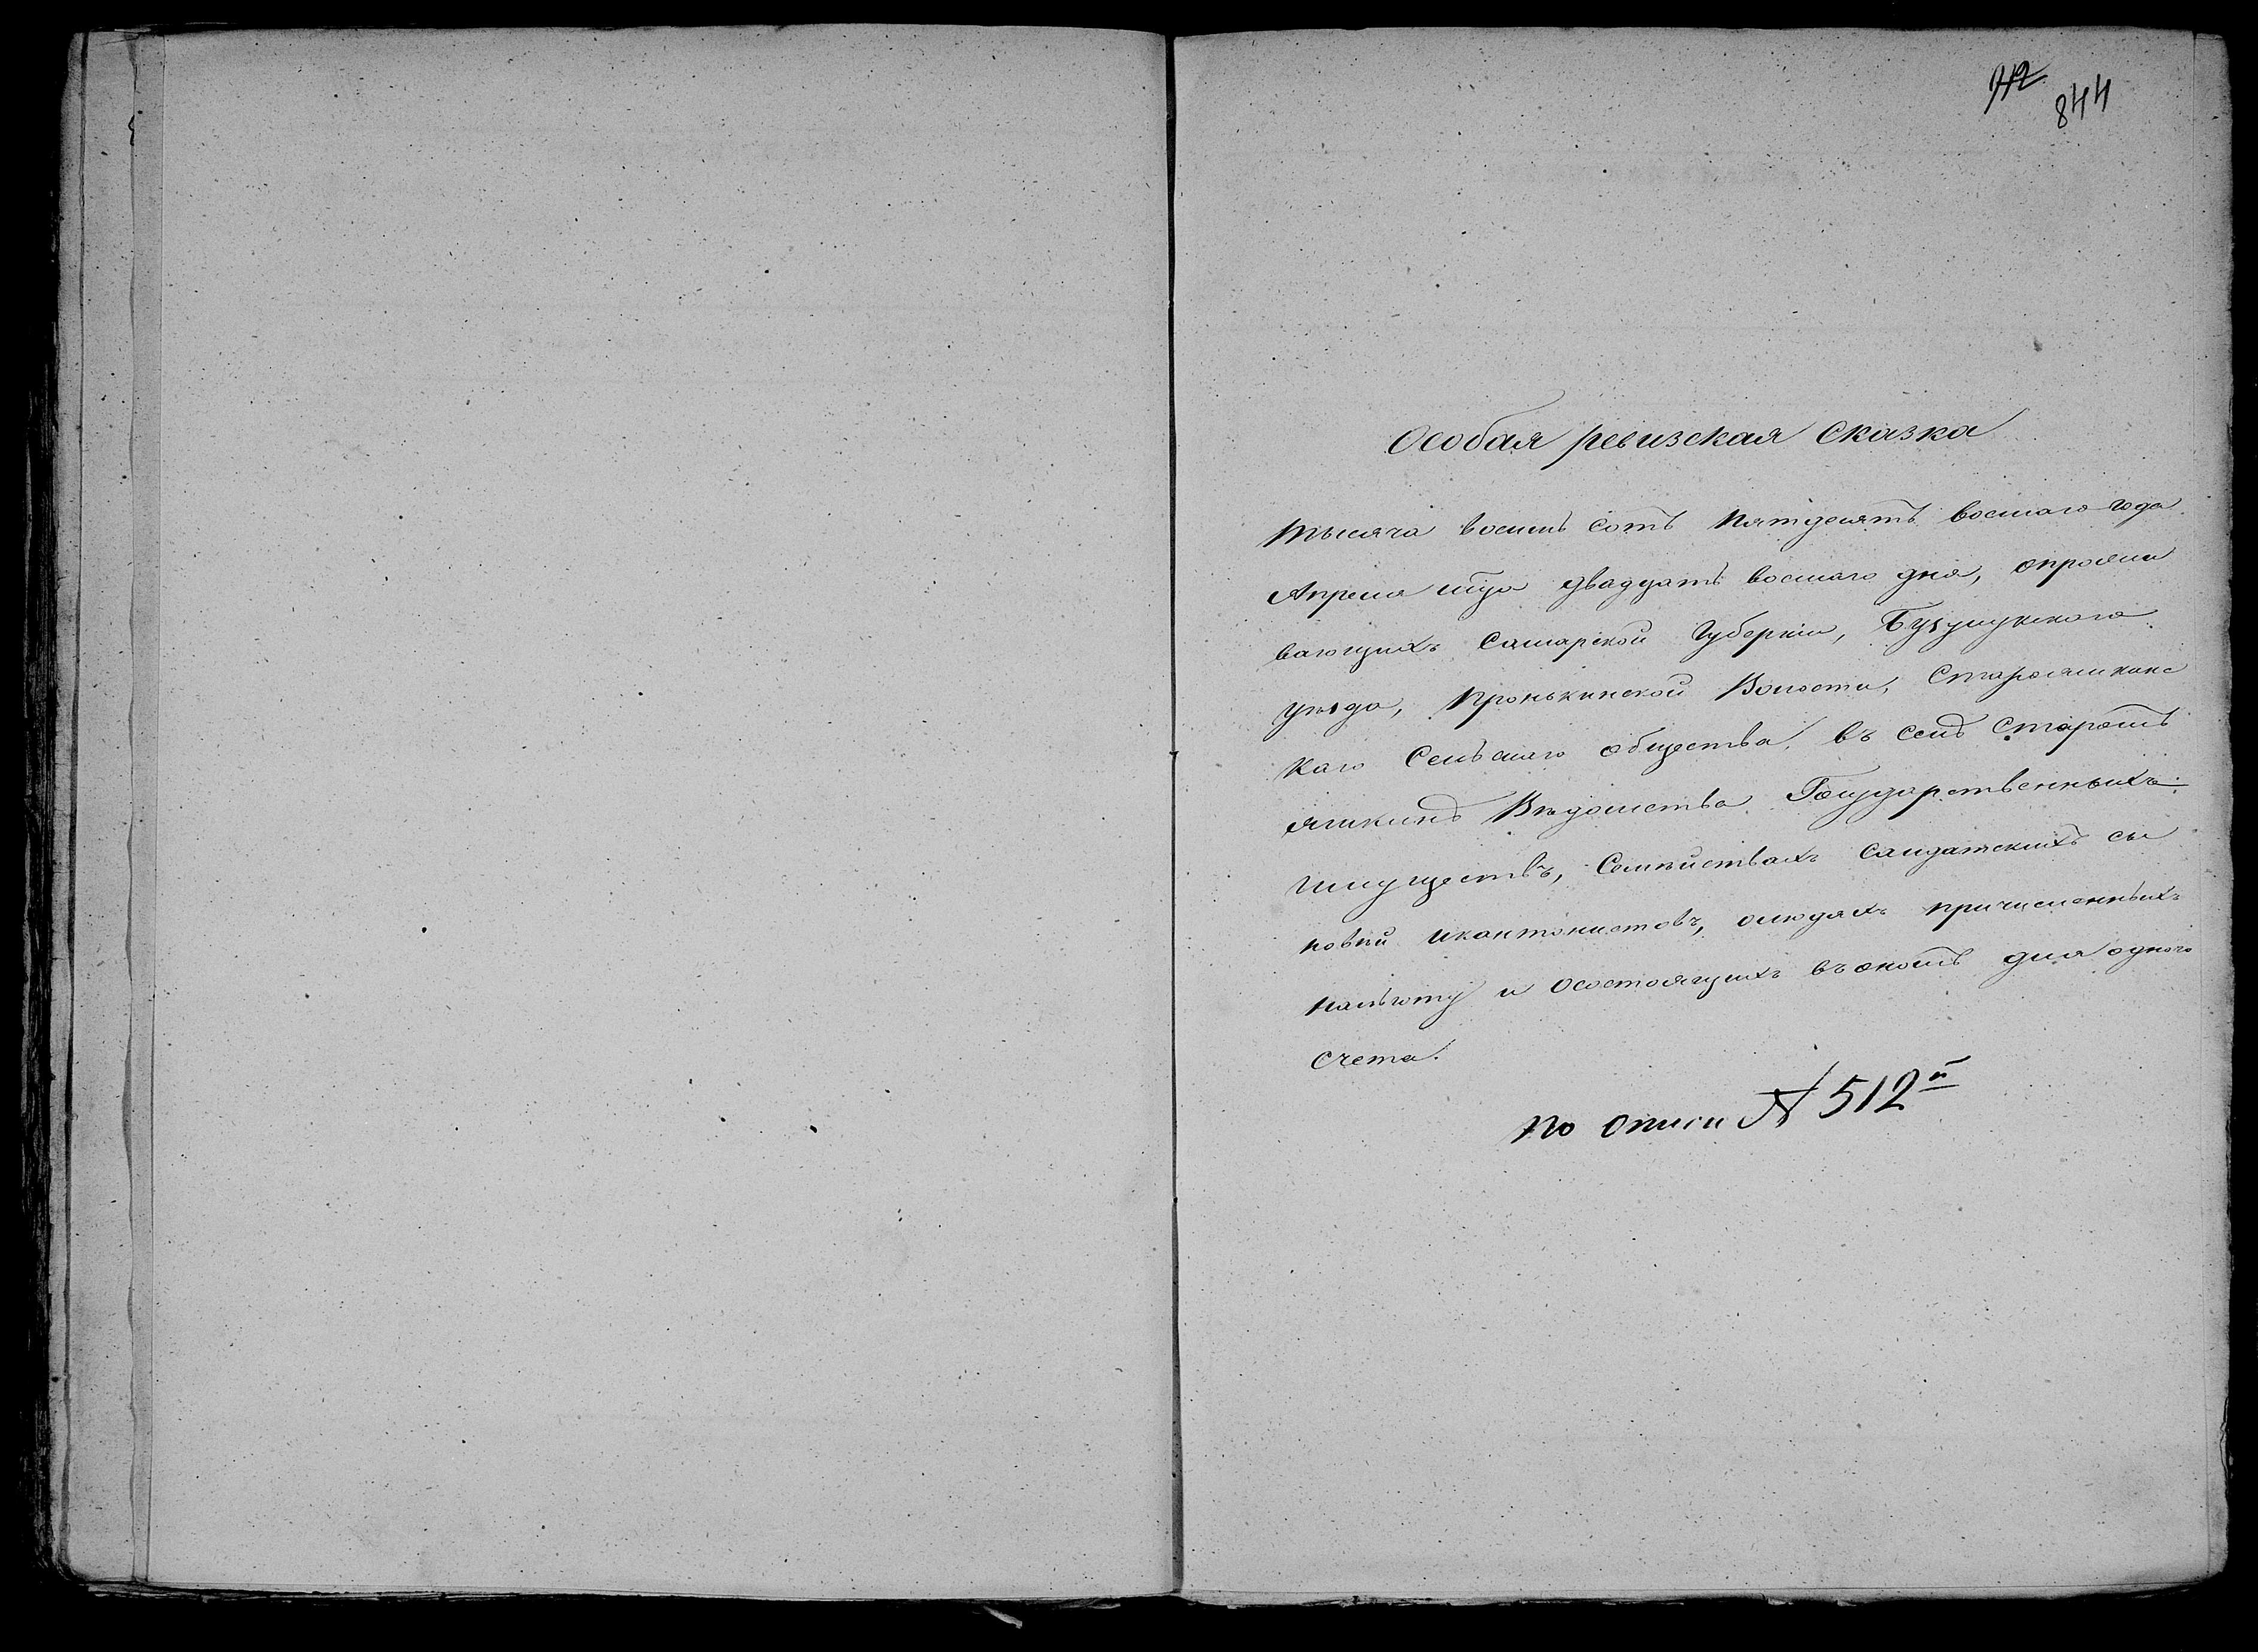 844
Особая ревизская сказка
тысяча восемь сотъ пятдесятъ восмаго года
Апреля мца двадцать восмаго дня, опрожи
вающихъ Самарской Губерніи, Бузулукскаго
уѣзда, Пронькинской Волости, Староянкинс
каго Сельскаго общества, въ селѣ Старомъ
янкинѣ Вѣдомства Государственныхъ
имуществъ, Семѣйствахъ салдатскихъ сы
новей икантонистовъ, олюдяхъ причисленныхъ
и осостоящихъ въ ономъ для одного
счета.
по описи № 512й